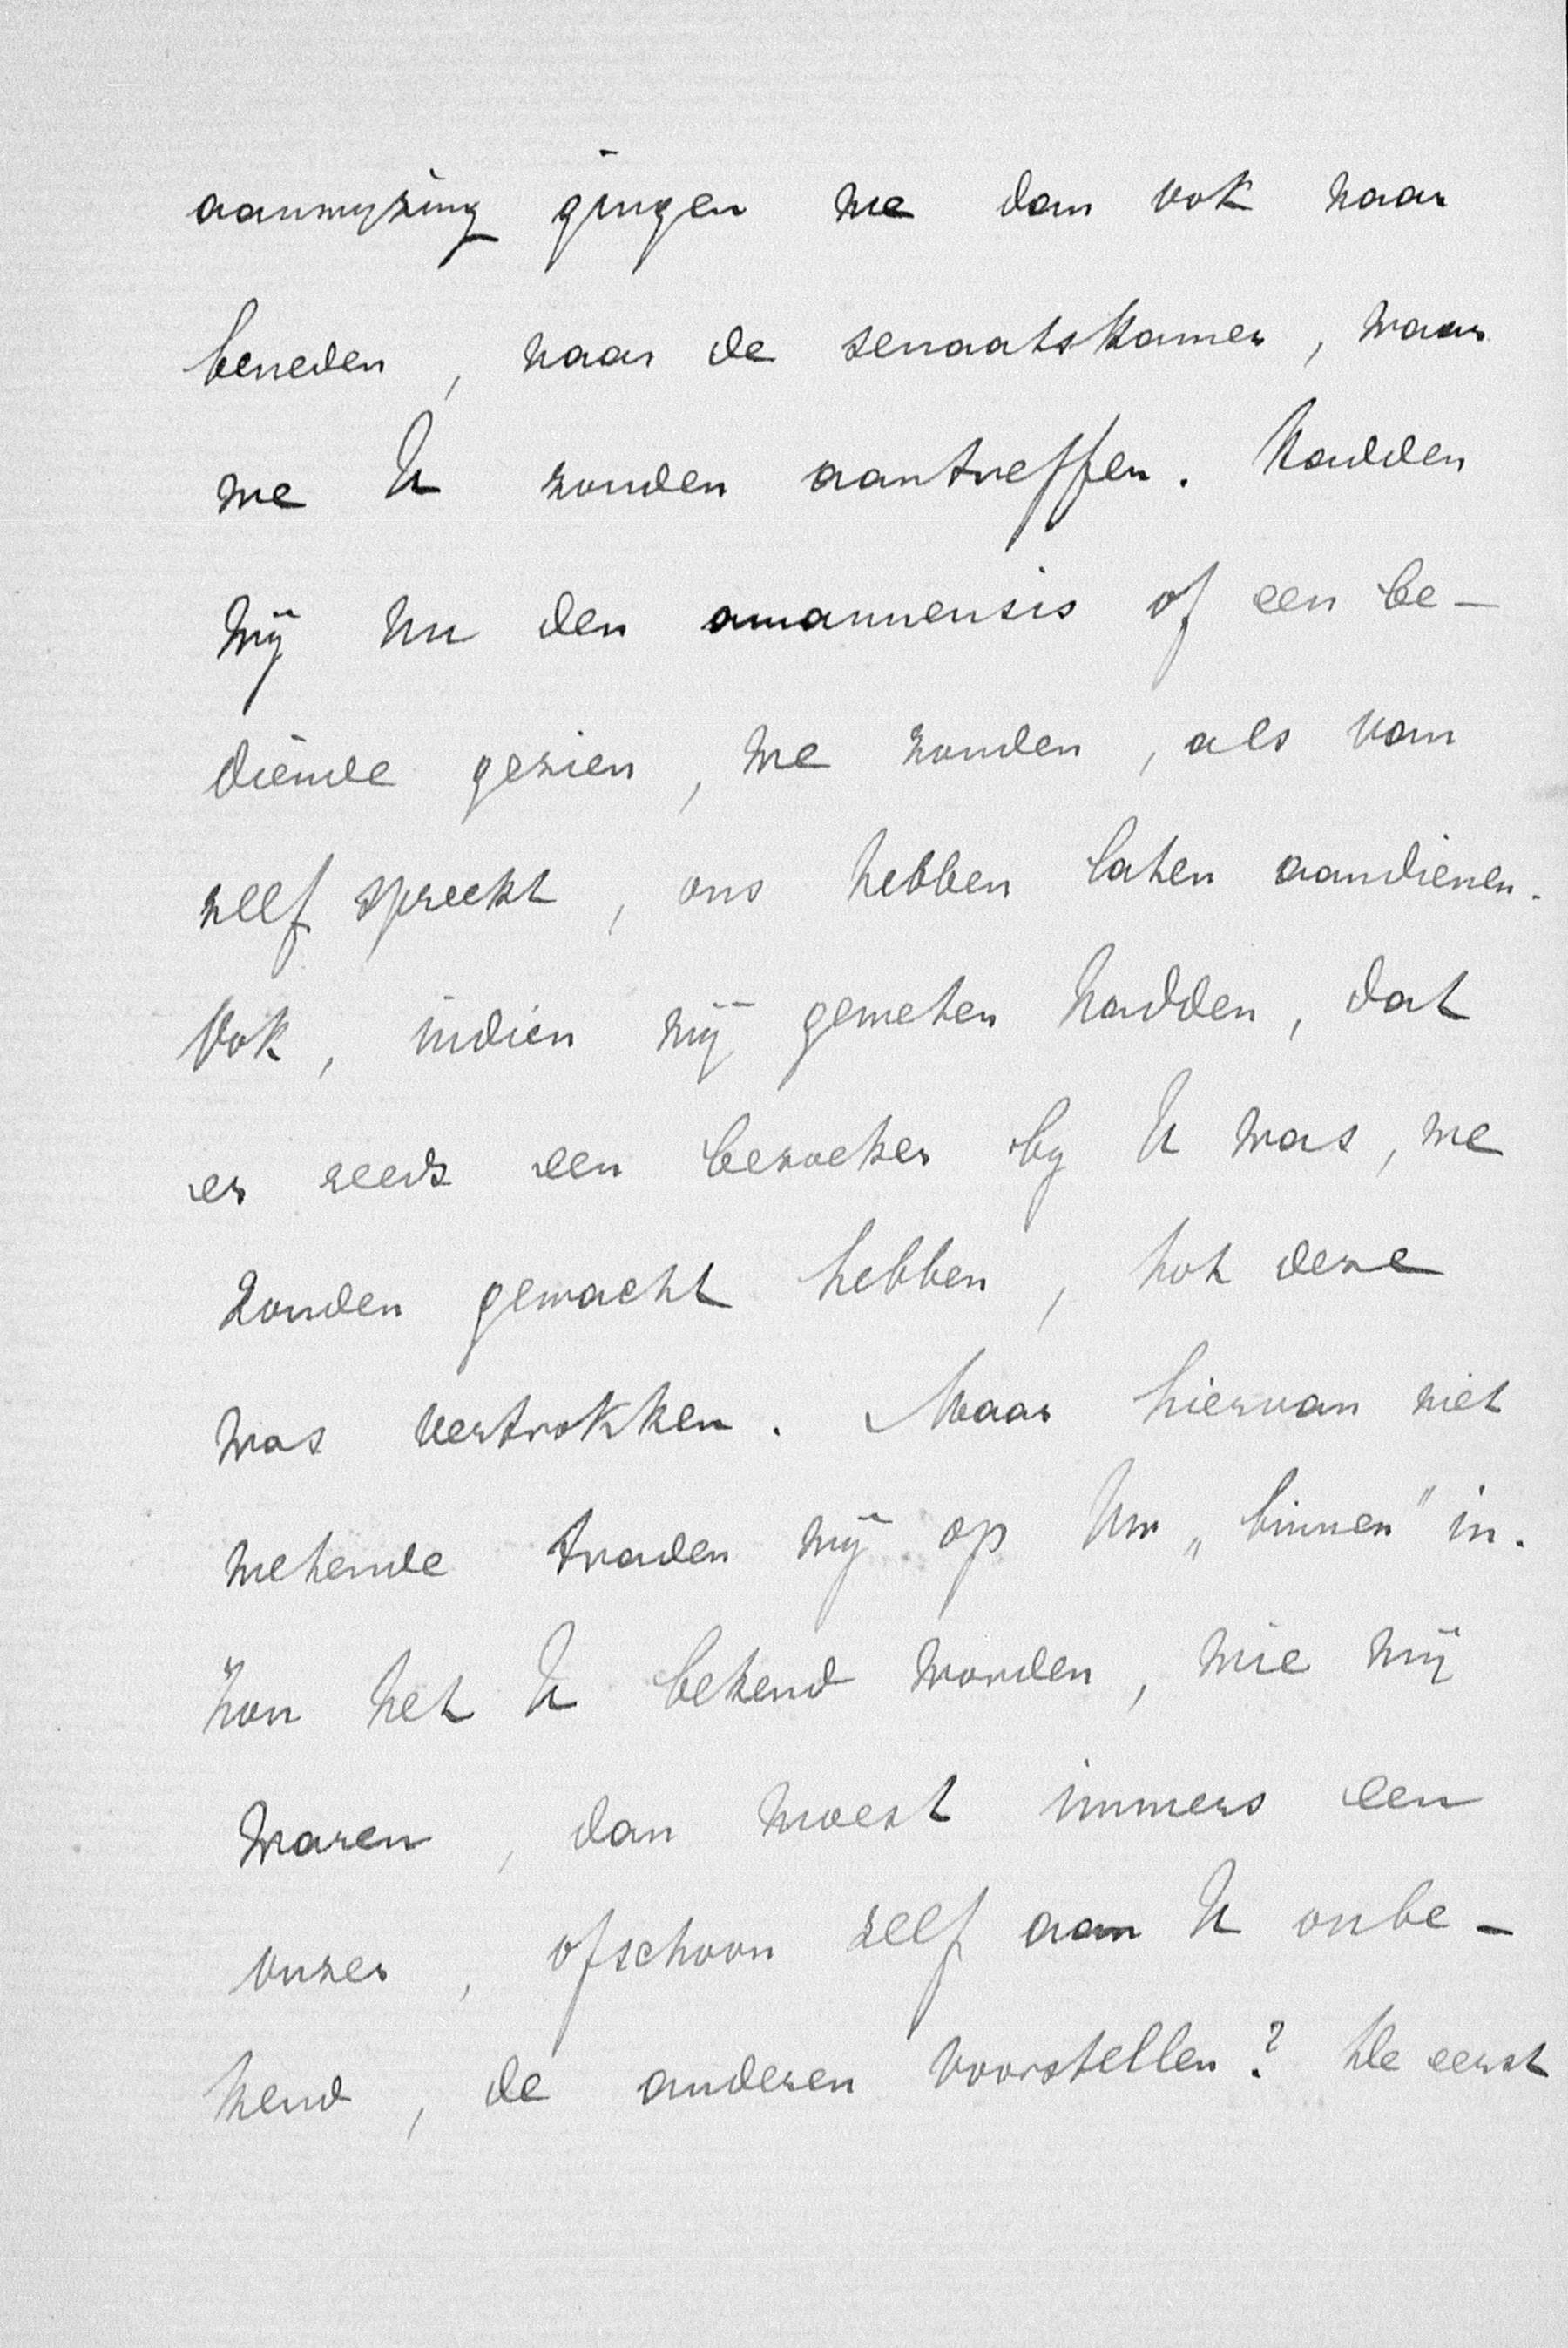 aanwyzing gingen we dan ook naar
beneden, naar de senaatskamer, waar
we U zouden aantreffen. Hadden
wij nu den amanuensis of een be-
diende gezien, we zouden, als van
zelf spreekt, ons hebben laten aandienen.
Ook, indien wij geweten hadden, dat
er reeds een bezoeker by U was, we
zouden gewacht hebben, tot deze
was vertrokken. Maar hiervan niet
wetende traden wij op Uw „binnen" in.
Kon het U bekend worden, wie wij
waren, dan moest immers een
onzer, ofschoon zelf aan U onbe-
kend, de anderen voorstellen? De eerst